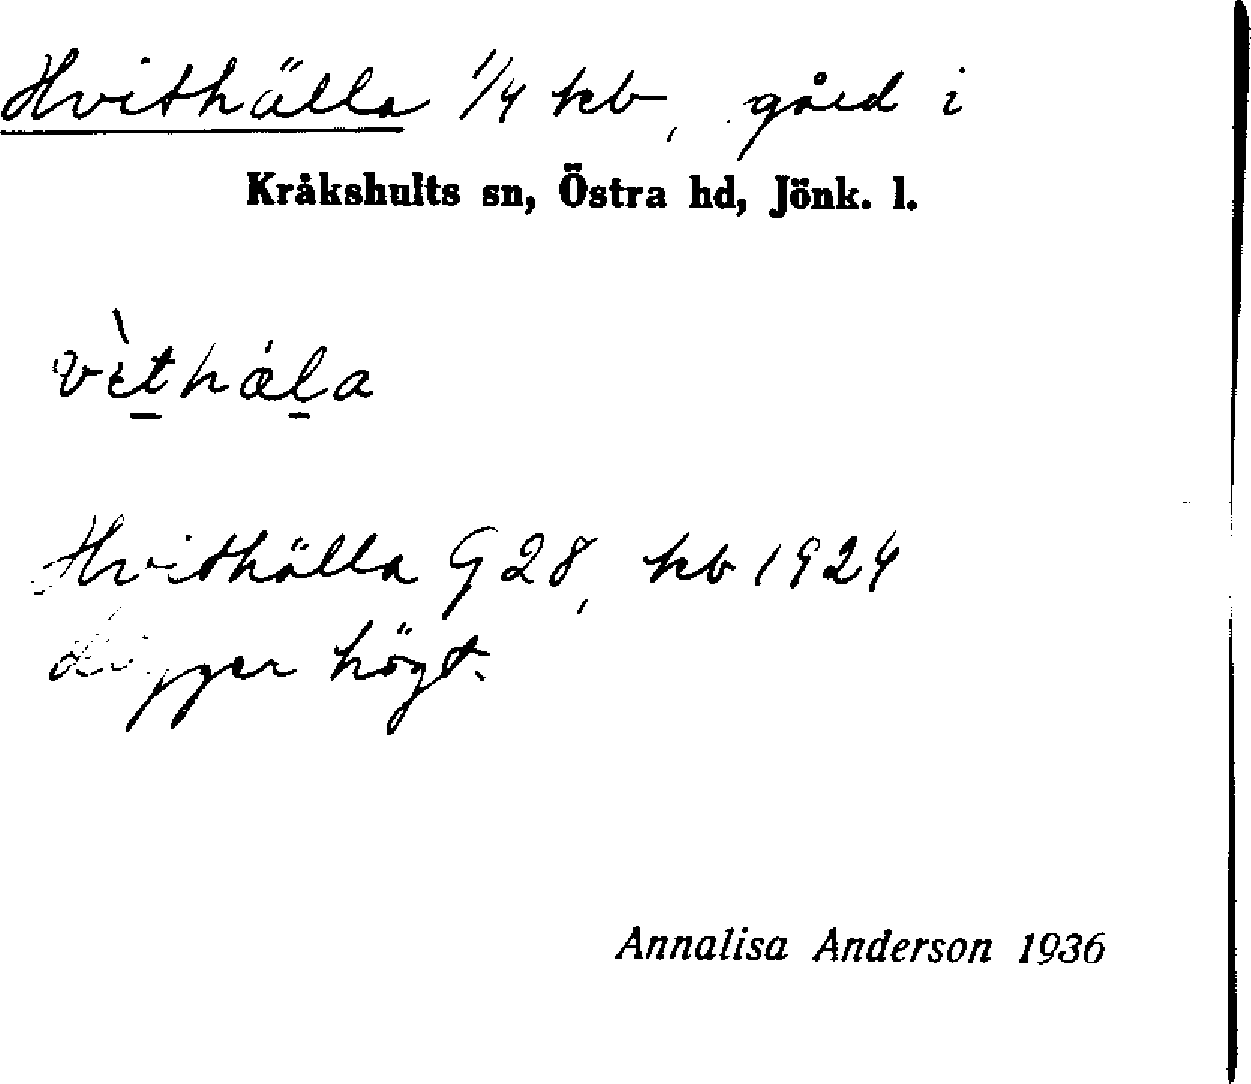 Hvithälla 1/4 kb, gård i
Kråkshults sn, Östra hd, Jönk. l.
vèt̠hǽl̠a
Hvithälla G 28, kb 1924
Ligger högt.
Annalisa Anderson 1936